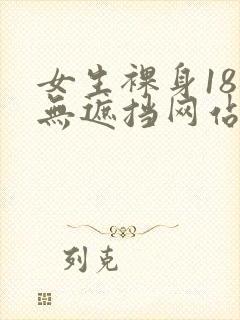 女生裸身18
無遮挡网估
列克